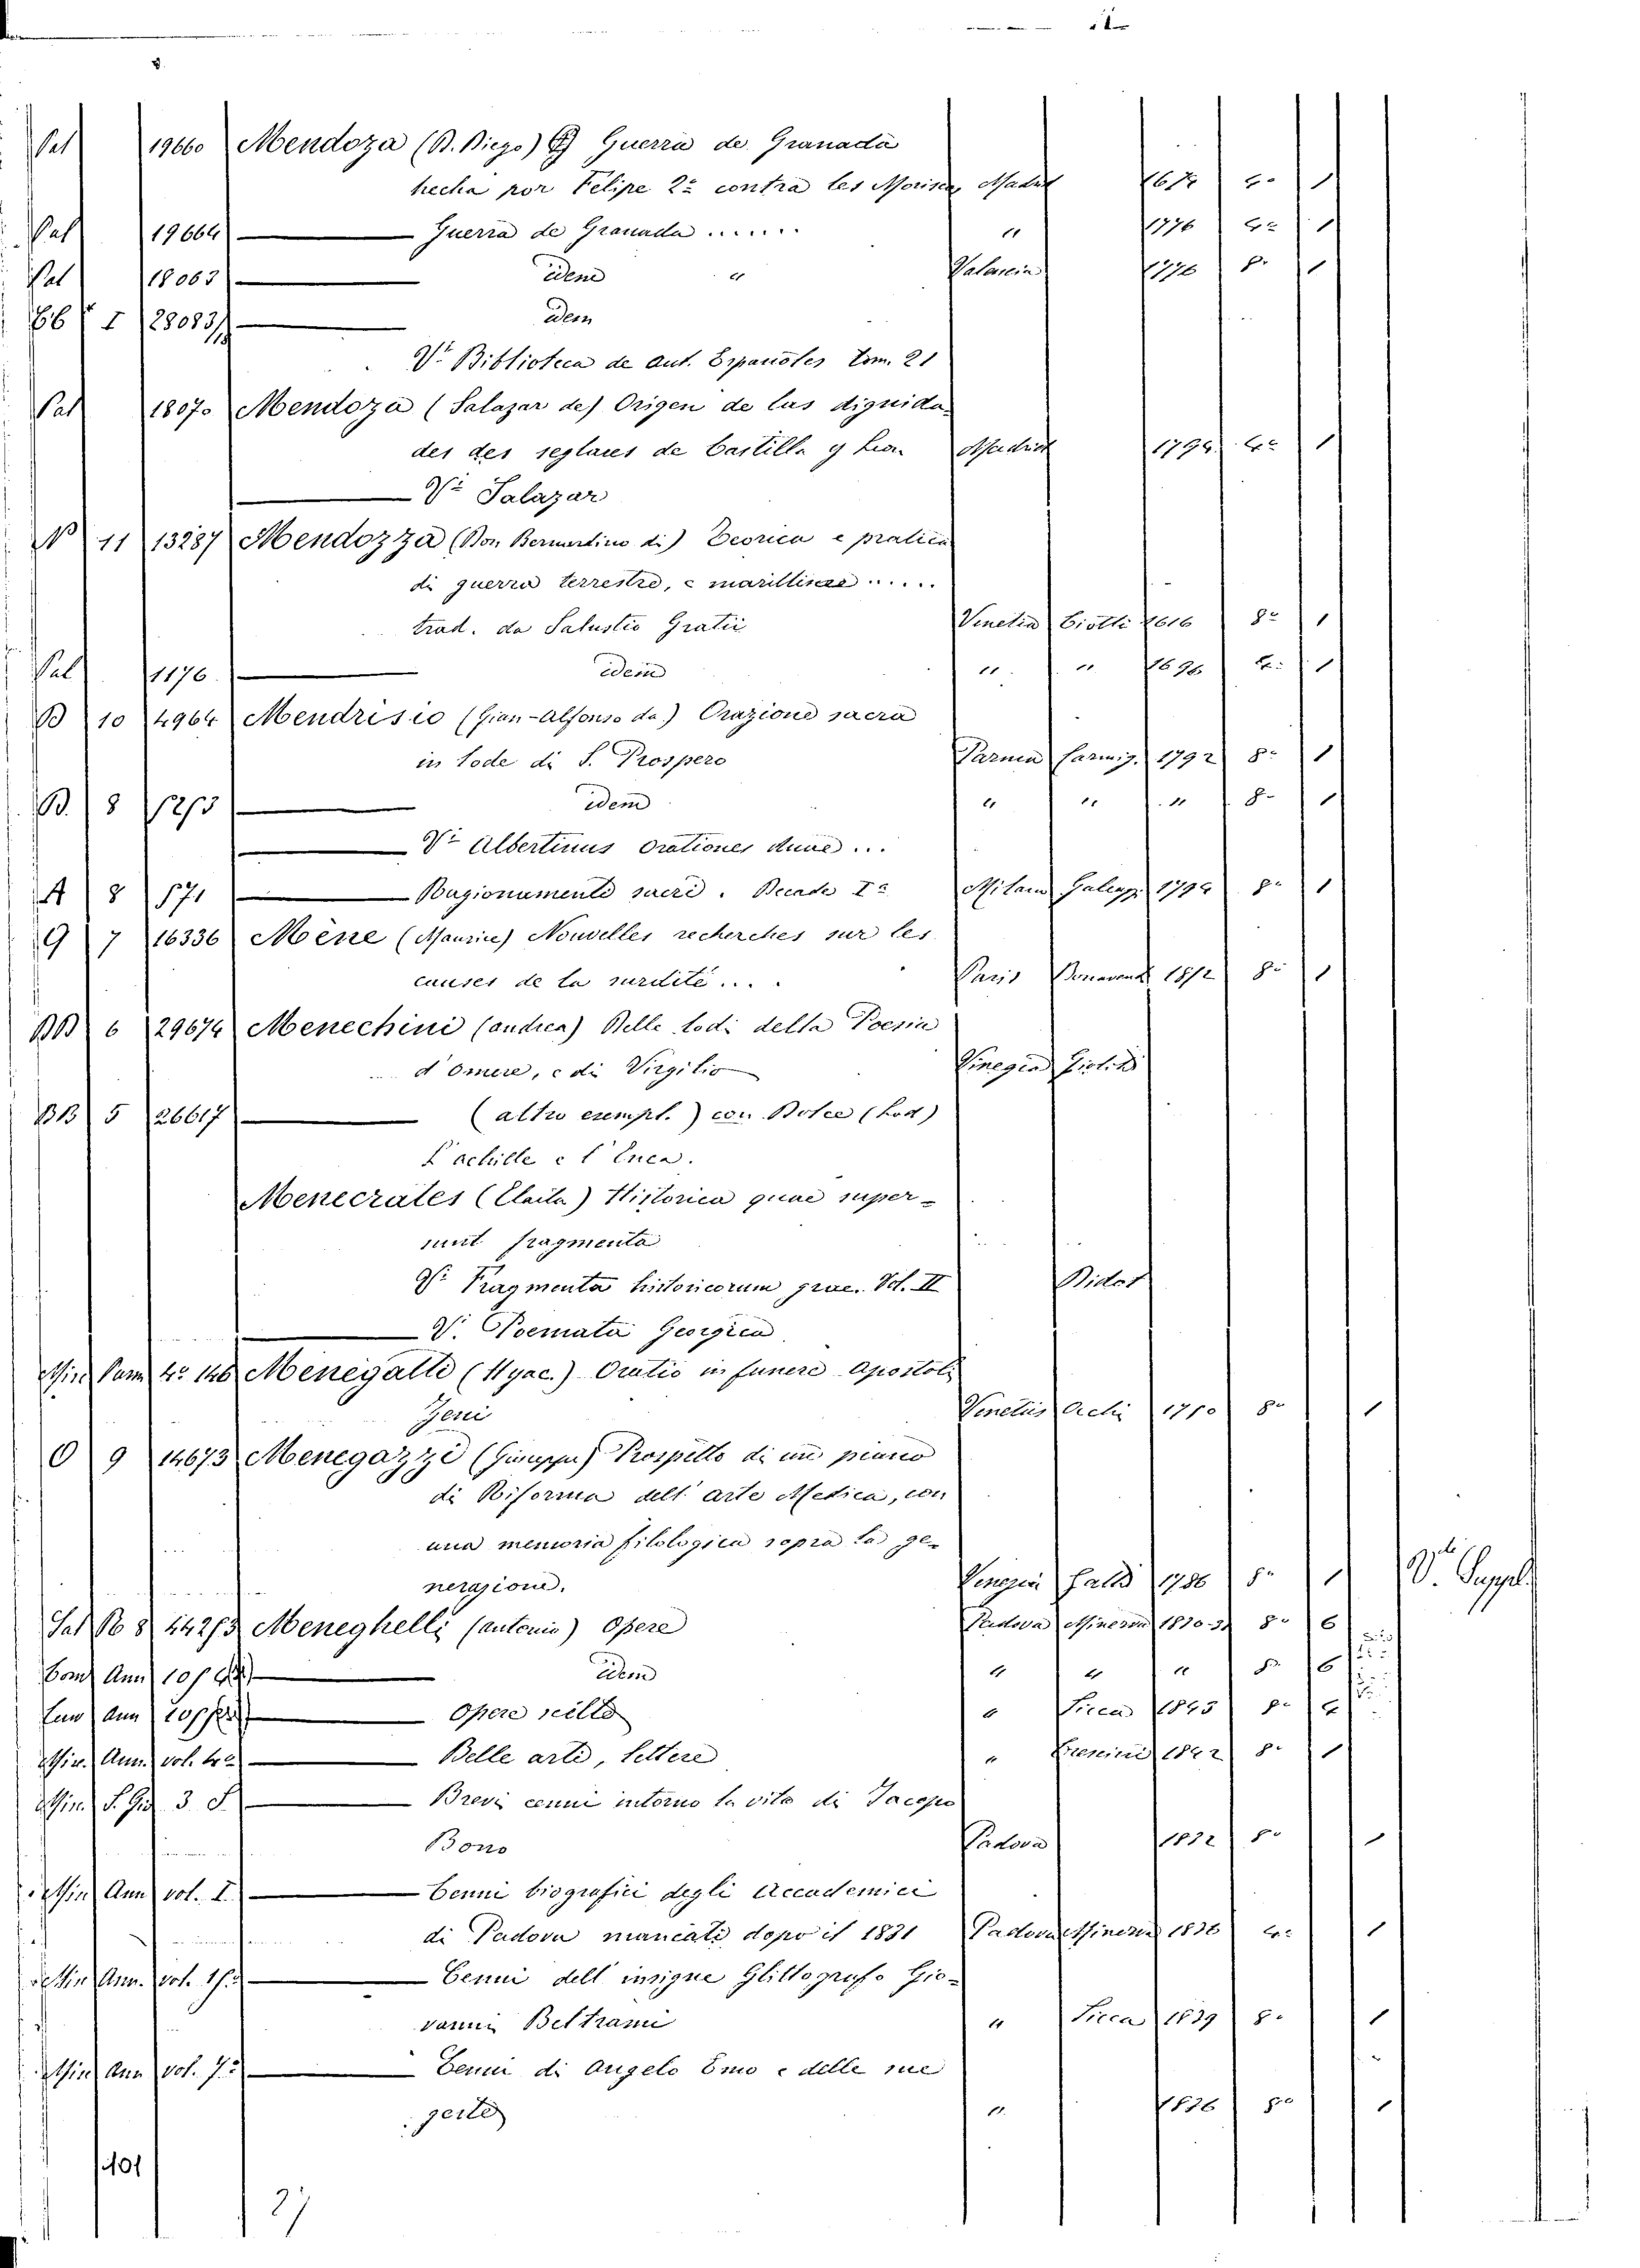 Sal 19660 Mendoza (D. Diego) Guerra de Granada
hecha por Felipe 2º contra les Moriscos Madrid 4º 1
Sal 19664 Guerra de Granada ....... " 1776 4º 1
Sal 18063 idem " Valencia 1776 8º 1
I 28083 idem
Vº Biblioteca de Aut. Españoles tom. 21
Sal 18070 Mendoza (Salazar de) Origen de las dignida-
des des seglares de Castilla y Leon Madrid 1794 4º 1
Vº Salazar
N 11 13287 Mendozza (Don Bernardino di) Teorica e pratica
di guerra terrestre, e marittima .....
trad. da Salustio Gratii Venetia Ciotti 1616 8º 1
Sal 1176 idem " " 4º 1
B 10 4964 Mendrisio (Gian-Alfonso da) Orazione sacra
in lode di S. Prospero Parma Carmig. 1792 8º 1
B. 8 idem " " " 8º 1
Vº Albertinus Orationes duae ...
A 8 571 Ragionamenti sacri. Decade Iª Milano Galeazzi 1794 8º 1
9 7 16336 Mène (Maurice) Nouvelles recherches sur les
causes de la surdité .... Paris 8º 1
BB 6 29674 Menechini (Andrea) Delle lodi della Poesia
d'Omero, e di Virgilio Vinegia Gioliti
BB 5 26617 (altro esempl.) con Dolce (Lod)
L'Achille e l'Enea.
Menecrates (Elaita) Historica quae super-
sunt fragmenta
Vº Fragmenta historicorum graec. Vol. II Didot
V. Poemata Georgica
Min Pam 4º 146 Menegatti (Hyac.) Oratio in funere Apostoli
Zeni Venetiis Occhi 1750 8º 1
O 9 14673 Menegazzi (Giuseppe) Prospetto di un piano
di Riforma dell'arte Medica, con
una memoria filologica sopra la ge-
nerazione. Venezia 1786 8º 1 V. Suppl.
44273 Meneghelli (Antonio) Opere Padova Minerva 8º 6
idem " " " 8º 6
Opere scelte " Sicca 1845 8º
Min. Ann. vol. 4º Belle arti, lettere " Crescini 1842 8º 1
Min. S. Gio 3 S. Brevi cenni intorno la vita di Jacopo
Bono Padova 1832 8º 1
Min Ann vol. I Cenni biografici degli Accademici
di Padova mancati dopo il 1831 Padova Minerva 1836 4º 1
Min Ann. vol. Cenni dell'insigne Glittografo Gio-
vanni Beltrami " Sicca 1839 8º 1
Min Ann vol. 7º Cenni di Angelo Emo e delle sue
geste " 1836 8º 1
101
27